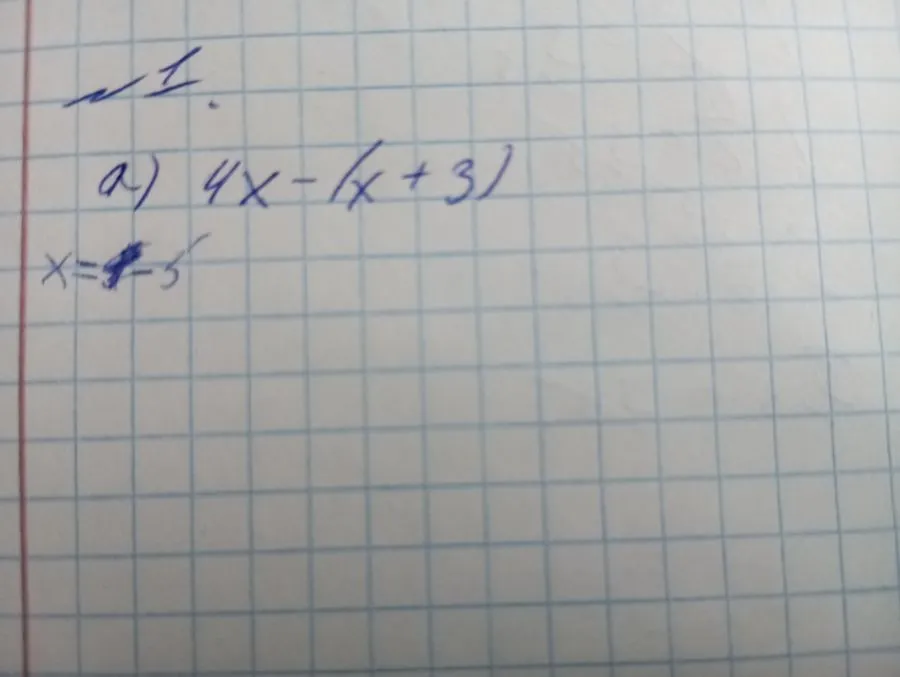 №1.
а) 4x-(x+3)
x=-5